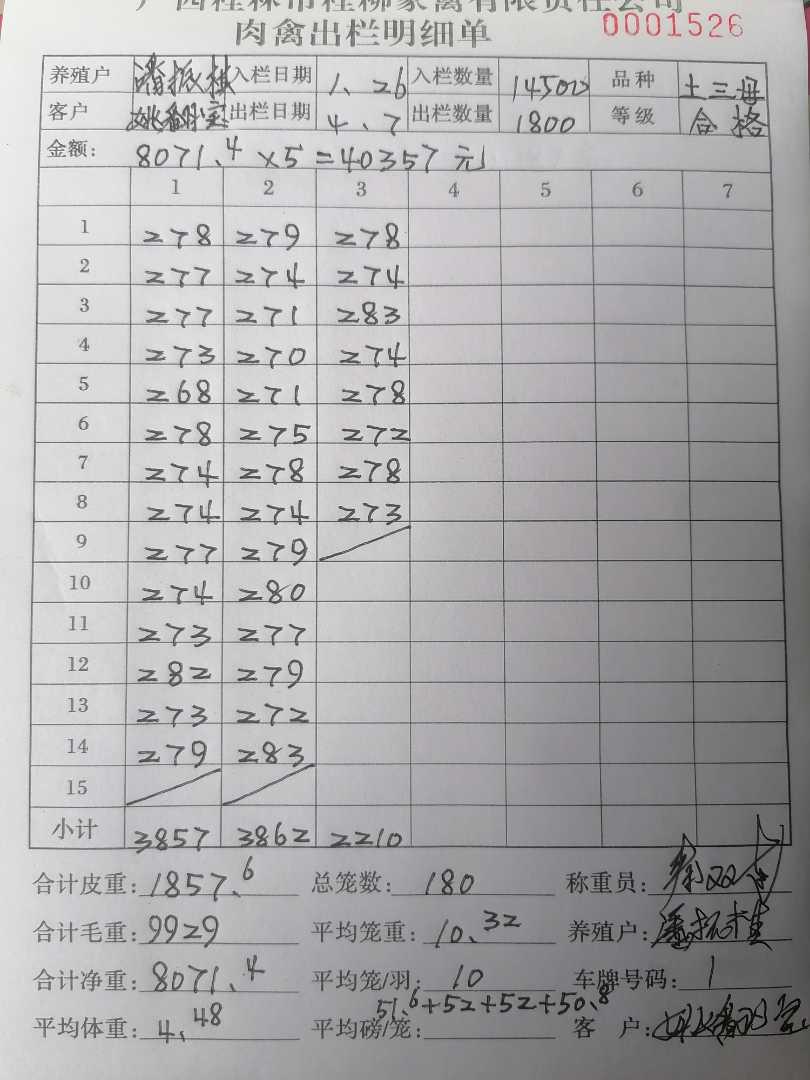 广西桂林市桂柳家禽有限责任公司
肉禽出栏明细单 0001526
养殖户 潘振林 入栏日期 1、26 入栏数量 14500 品种 土三母
客户 出栏日期 4、7 出栏数量 1800 等级 合格
金额: 8071.4 ×5 =40357元
1 2 3 4 5 6 7
1 278 279 278
2 277 274 274
3 277 271 283
4 273 270 274
5 268 271 278
6 278 275 272
7 274 278 278
8 274 274 273
9 277 279
10 274 280
11 273 277
12 282 279
13 273 272
14 279 283
15
小计 3857 3862 2210
合计皮重: 1857.6 总笼数: 180 称重员:
合计毛重: 9929 平均笼重: 10.32 养殖户:
合计净重: 8071.4 平均笼/羽: 10 车牌号码: 1
51.6+52+52+50.8
平均体重: 4.48 平均磅/笼: 客户: